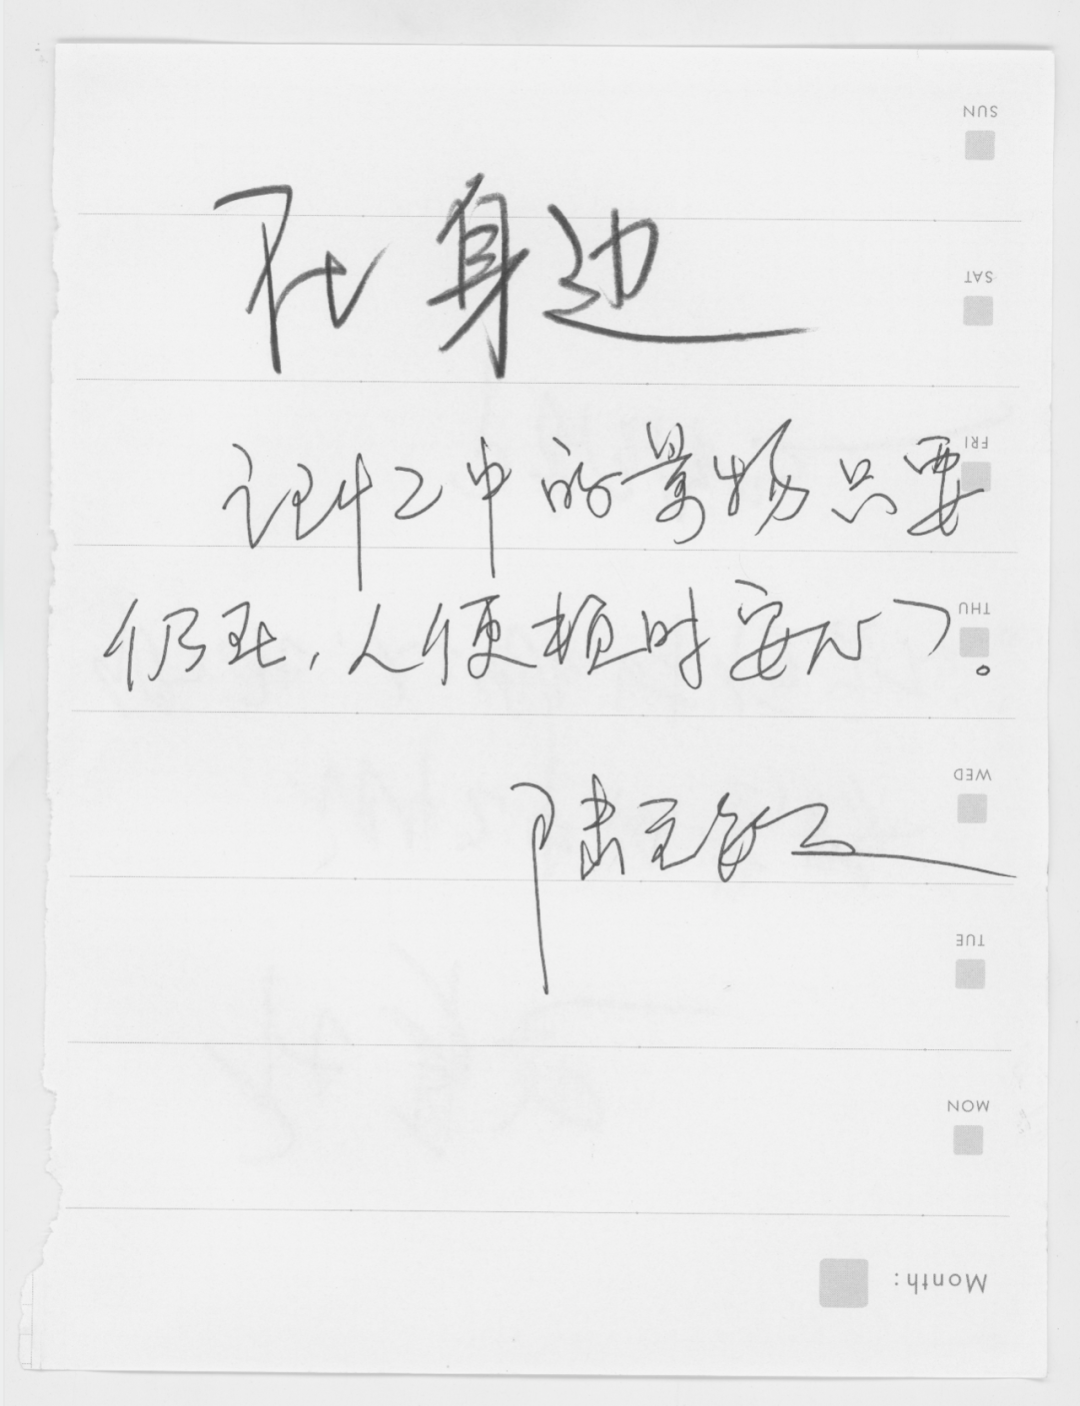 在身边
记忆中的景物只要
仍在，人便顿时安心了。
陆元敏
SUN
SAT
FRI
THU
WED
TUE
MON
Month: